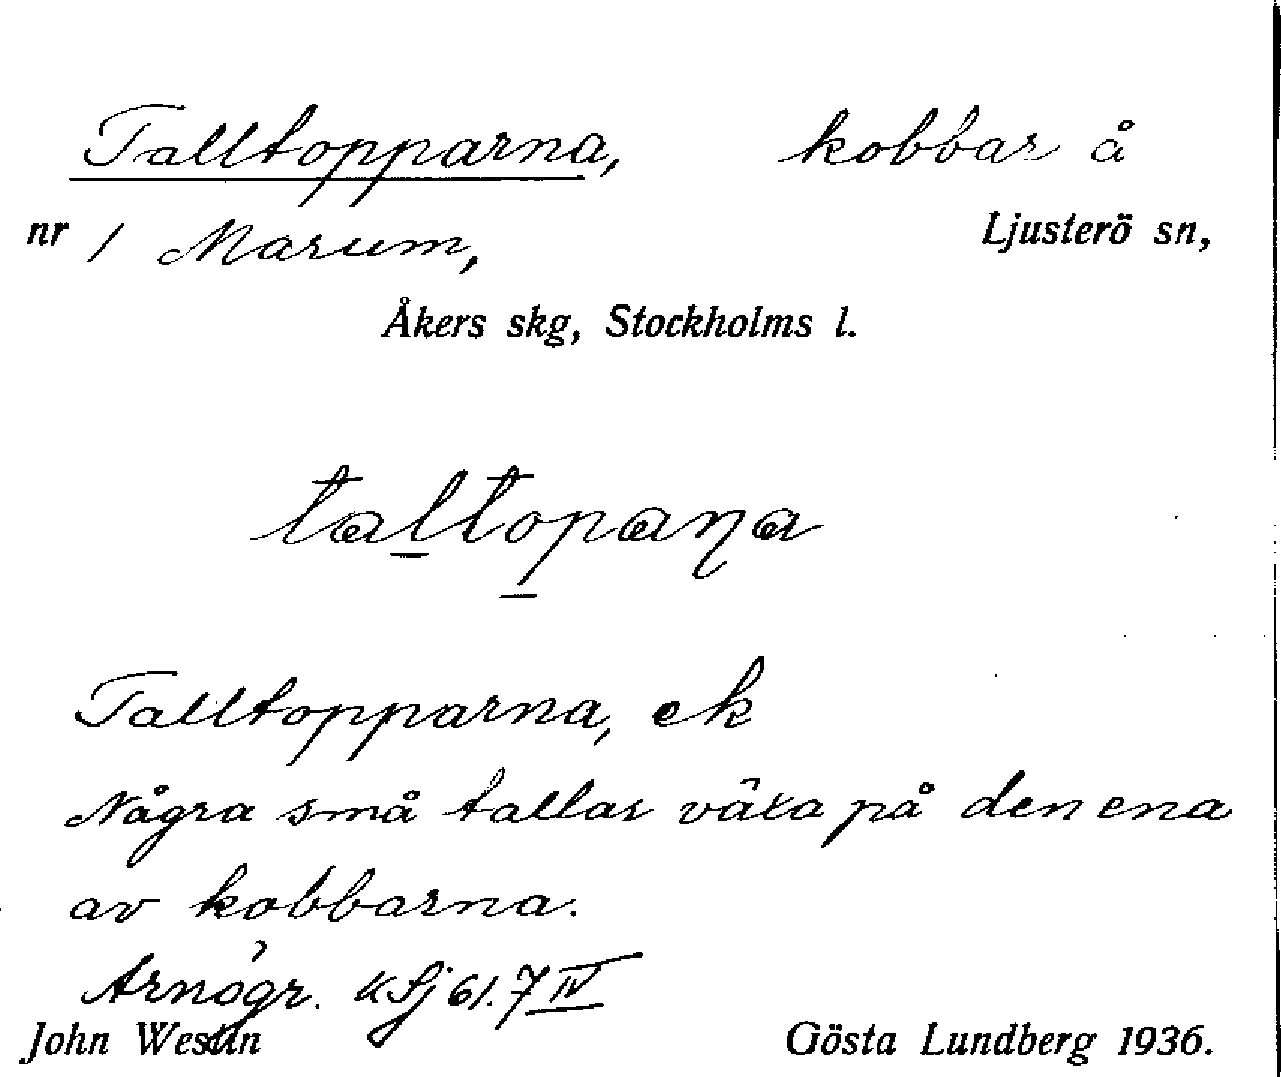 Talltopparna, kobbar å
nr 1 Marum, Ljusterö sn,
Åkers skg, Stockholms l.
taltopaṇa
Talltopparna, ek
Några små tallar växa på den ena
av kobbarna.
Arnögr. kfj 61. 7 IV
John Westin Gösta Lundberg 1936.